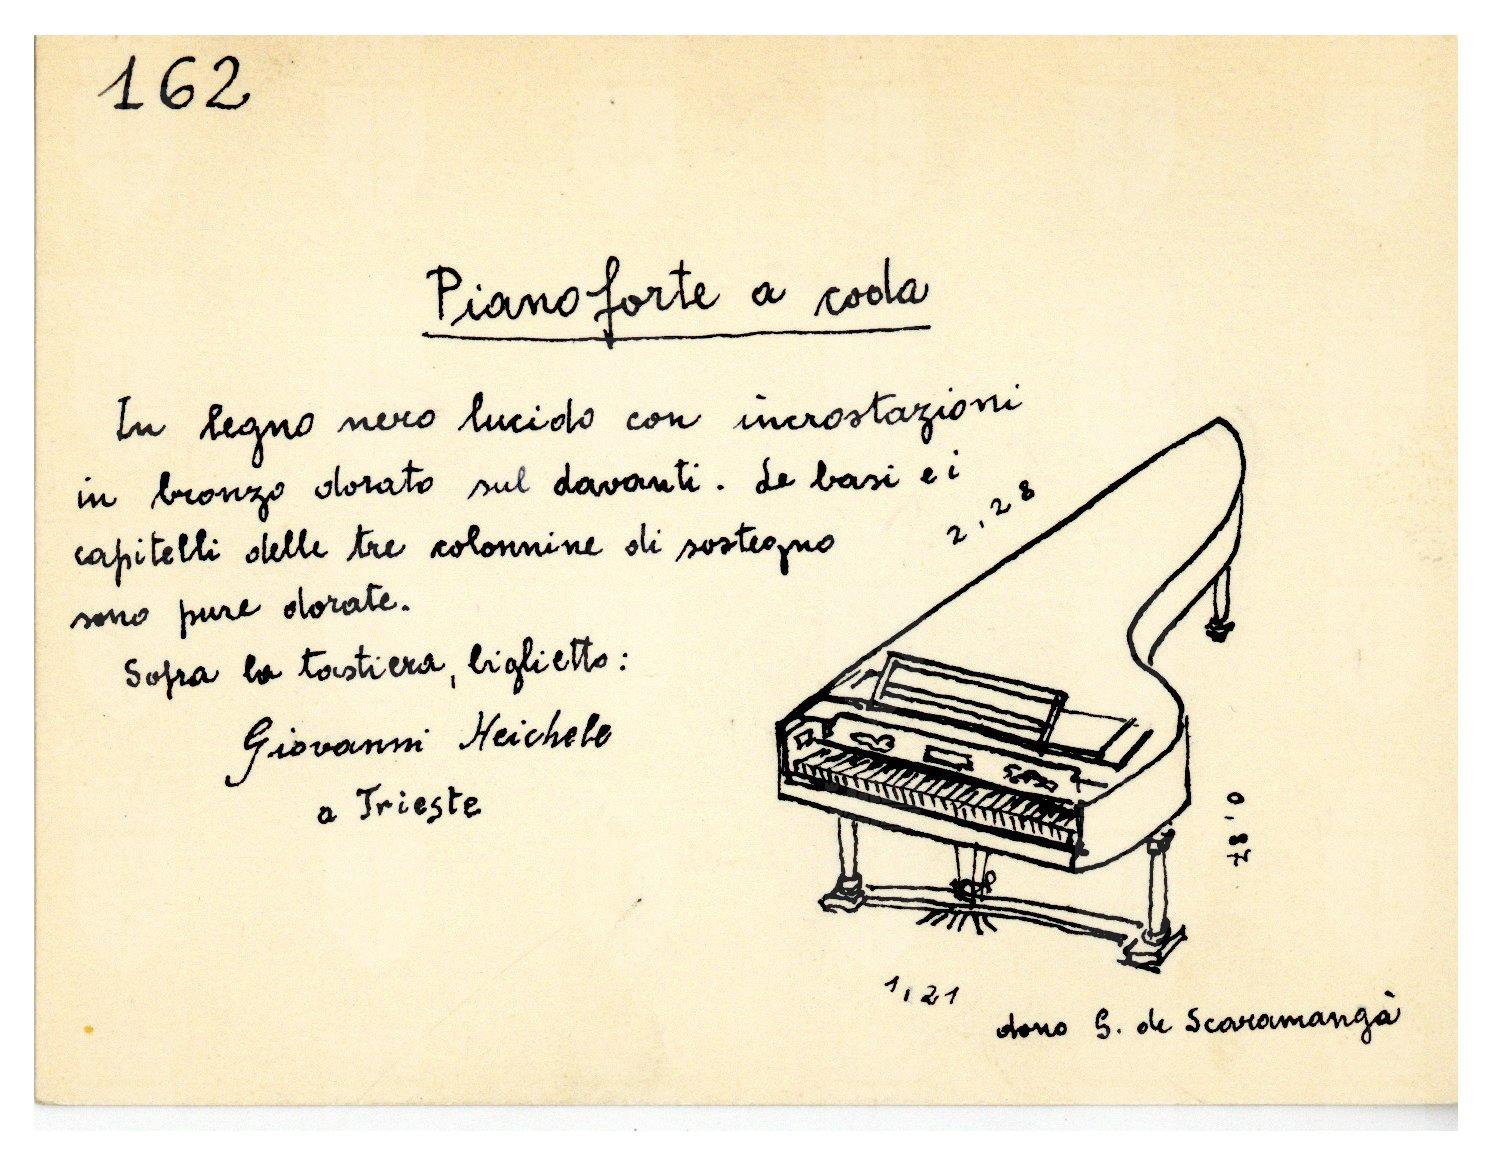 162
Pianoforte a coda
In legno nero lucido con incrostazioni
in bronzo dorato sul davanti. Le basi e i
capitelli delle tre colonnine di sostegno
sono pure dorate.
Sopra la tastiera, biglietto:
Giovanni Heichele
a Trieste
2,28
0,87
1,21
dono G. de Scaramangà